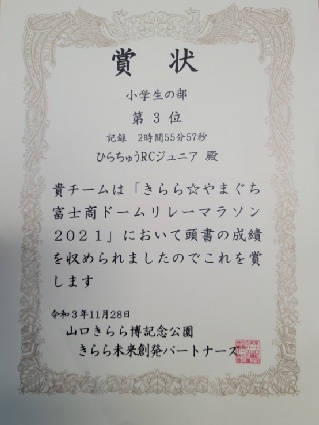 賞状
小学生の部
第3位
記録 2時間55分57秒
ひらちゅうRCジュニア 殿
貴チームは「きらら☆やまぐち
富士商ドームリレーマラソン
2021」において頭書の成績
を収められましたのでこれを賞
します
令和3年11月28日
山口きらら博記念公園
きらら未来創発パートナーズ